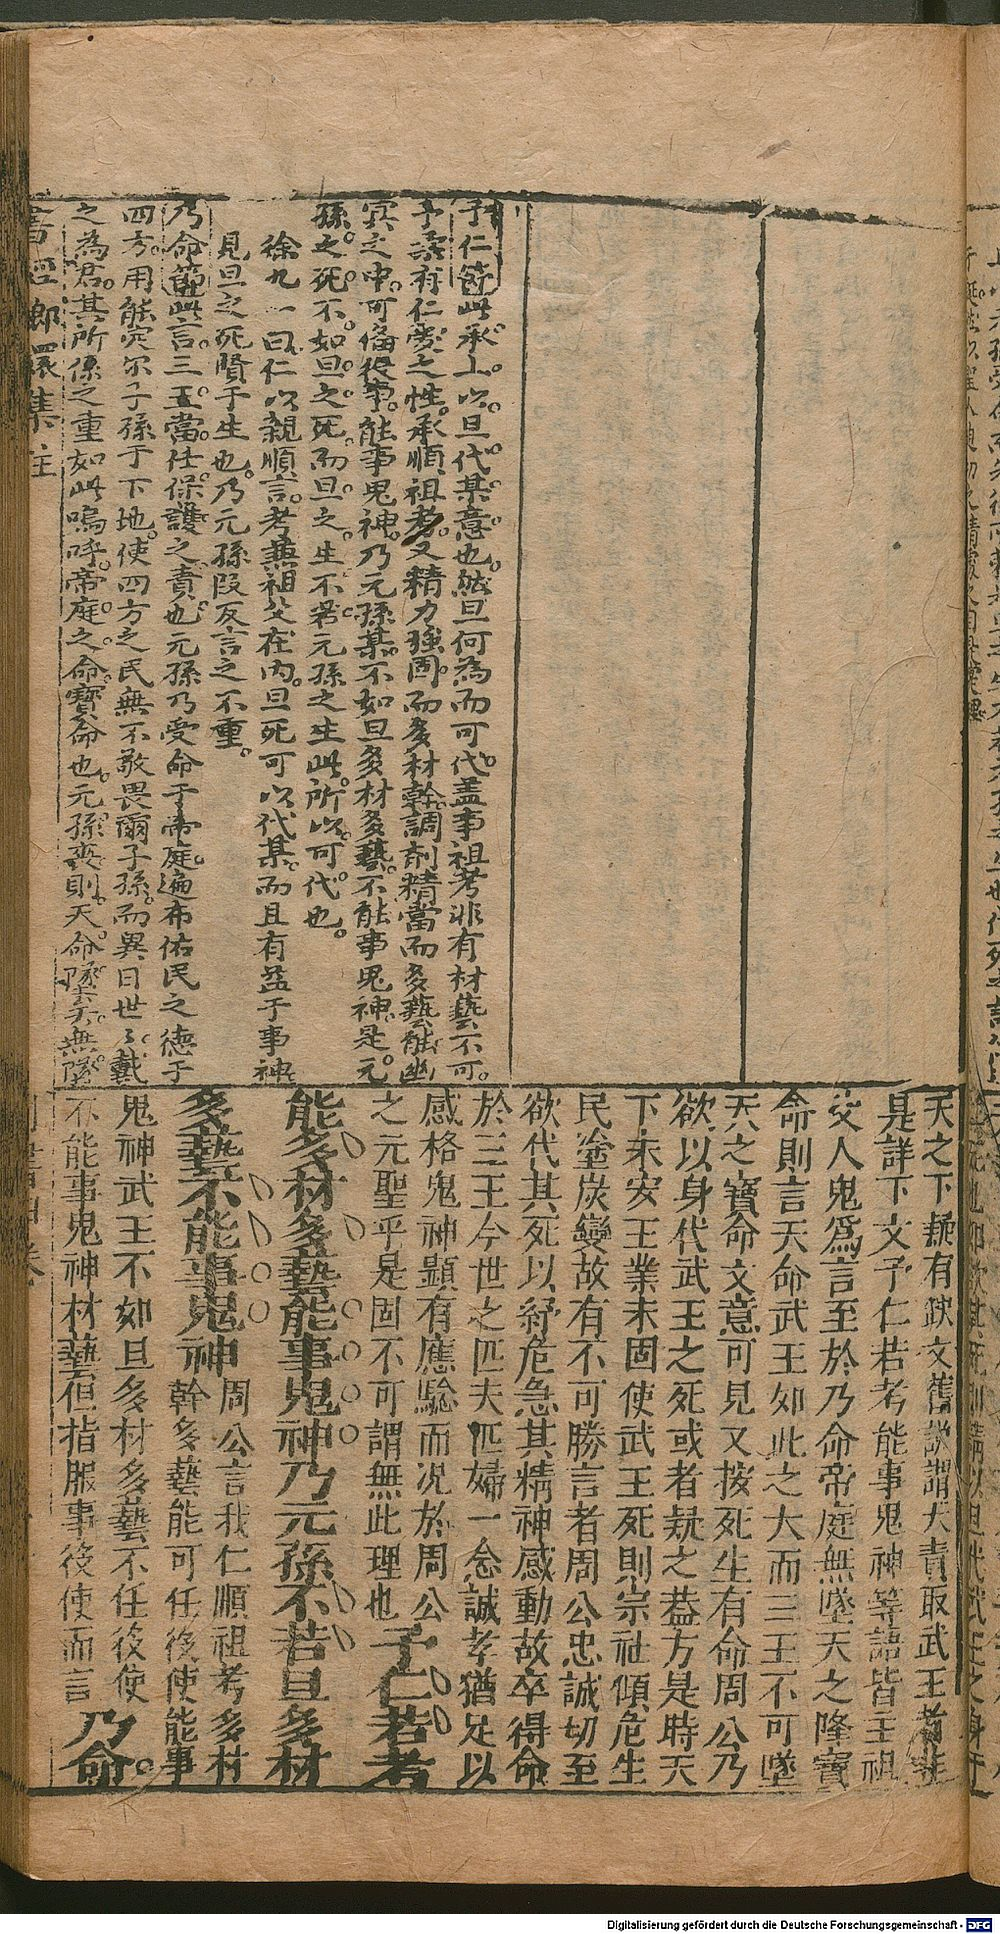 予仁節此承上以旦代某意也然旦何為而可代盖事祖考非有材藝不可
予棐有仁愛之性承順祖考又精力強固而多材幹調剤精當而多藝能幽
冥之中可俻役事能事鬼神乃元孫某不如旦多材多藝不能事鬼神是元
孫之死不如旦之死而旦之生不若元孫之生此所以可代也
徐九一曰仁以親順言考兼祖父在内旦死可以代某而且有益于事神
見旦之死賢于生也乃元孫段反言之不重
乃命節此言三王當任保護之責也元孫乃受命于帝庭遍布佑民之德于
四方用能定尔子孫于下地使四方之民無不敬畏爾子孫而異日世〻戴
之為君其所係之重如此嗚呼帝庭之命寶命也元孫喪則天命墜矣無墜
書經 集註
天之下疑有缺文舊說謂天責取武王者非
是詳下文予仁若考能事鬼神等語皆主祖
父人鬼爲言至於乃命帝庭無墜天之隆寶
命則言天命武王如此之大而三王不可墜
天之寶命文意可見又按死生有命周公乃
欲以身代武王之死或者疑之葢方是時天
下未安王業未固使武王死則宗社傾危生
民塗炭變故有不可勝言者周公忠誠切至
欲代其死以紓危急其精神感動故卒得命
於三王今世之匹夫匹婦一念誠孝猶足以
感格鬼神顯有應驗而况於周公
之元聖乎是固不可謂無此理也予仁若考
能多材多藝能事鬼神乃元孫不若旦多材
多藝不能事鬼神
周公言我仁順祖考多材
幹多藝能可任役使能事
鬼神武王不如旦多材多藝不任役使
不能事鬼神材藝但指服事役使而言乃命
Digitalisierung gefördert durch die Deutsche Forschungsgemeinschaft - DFG